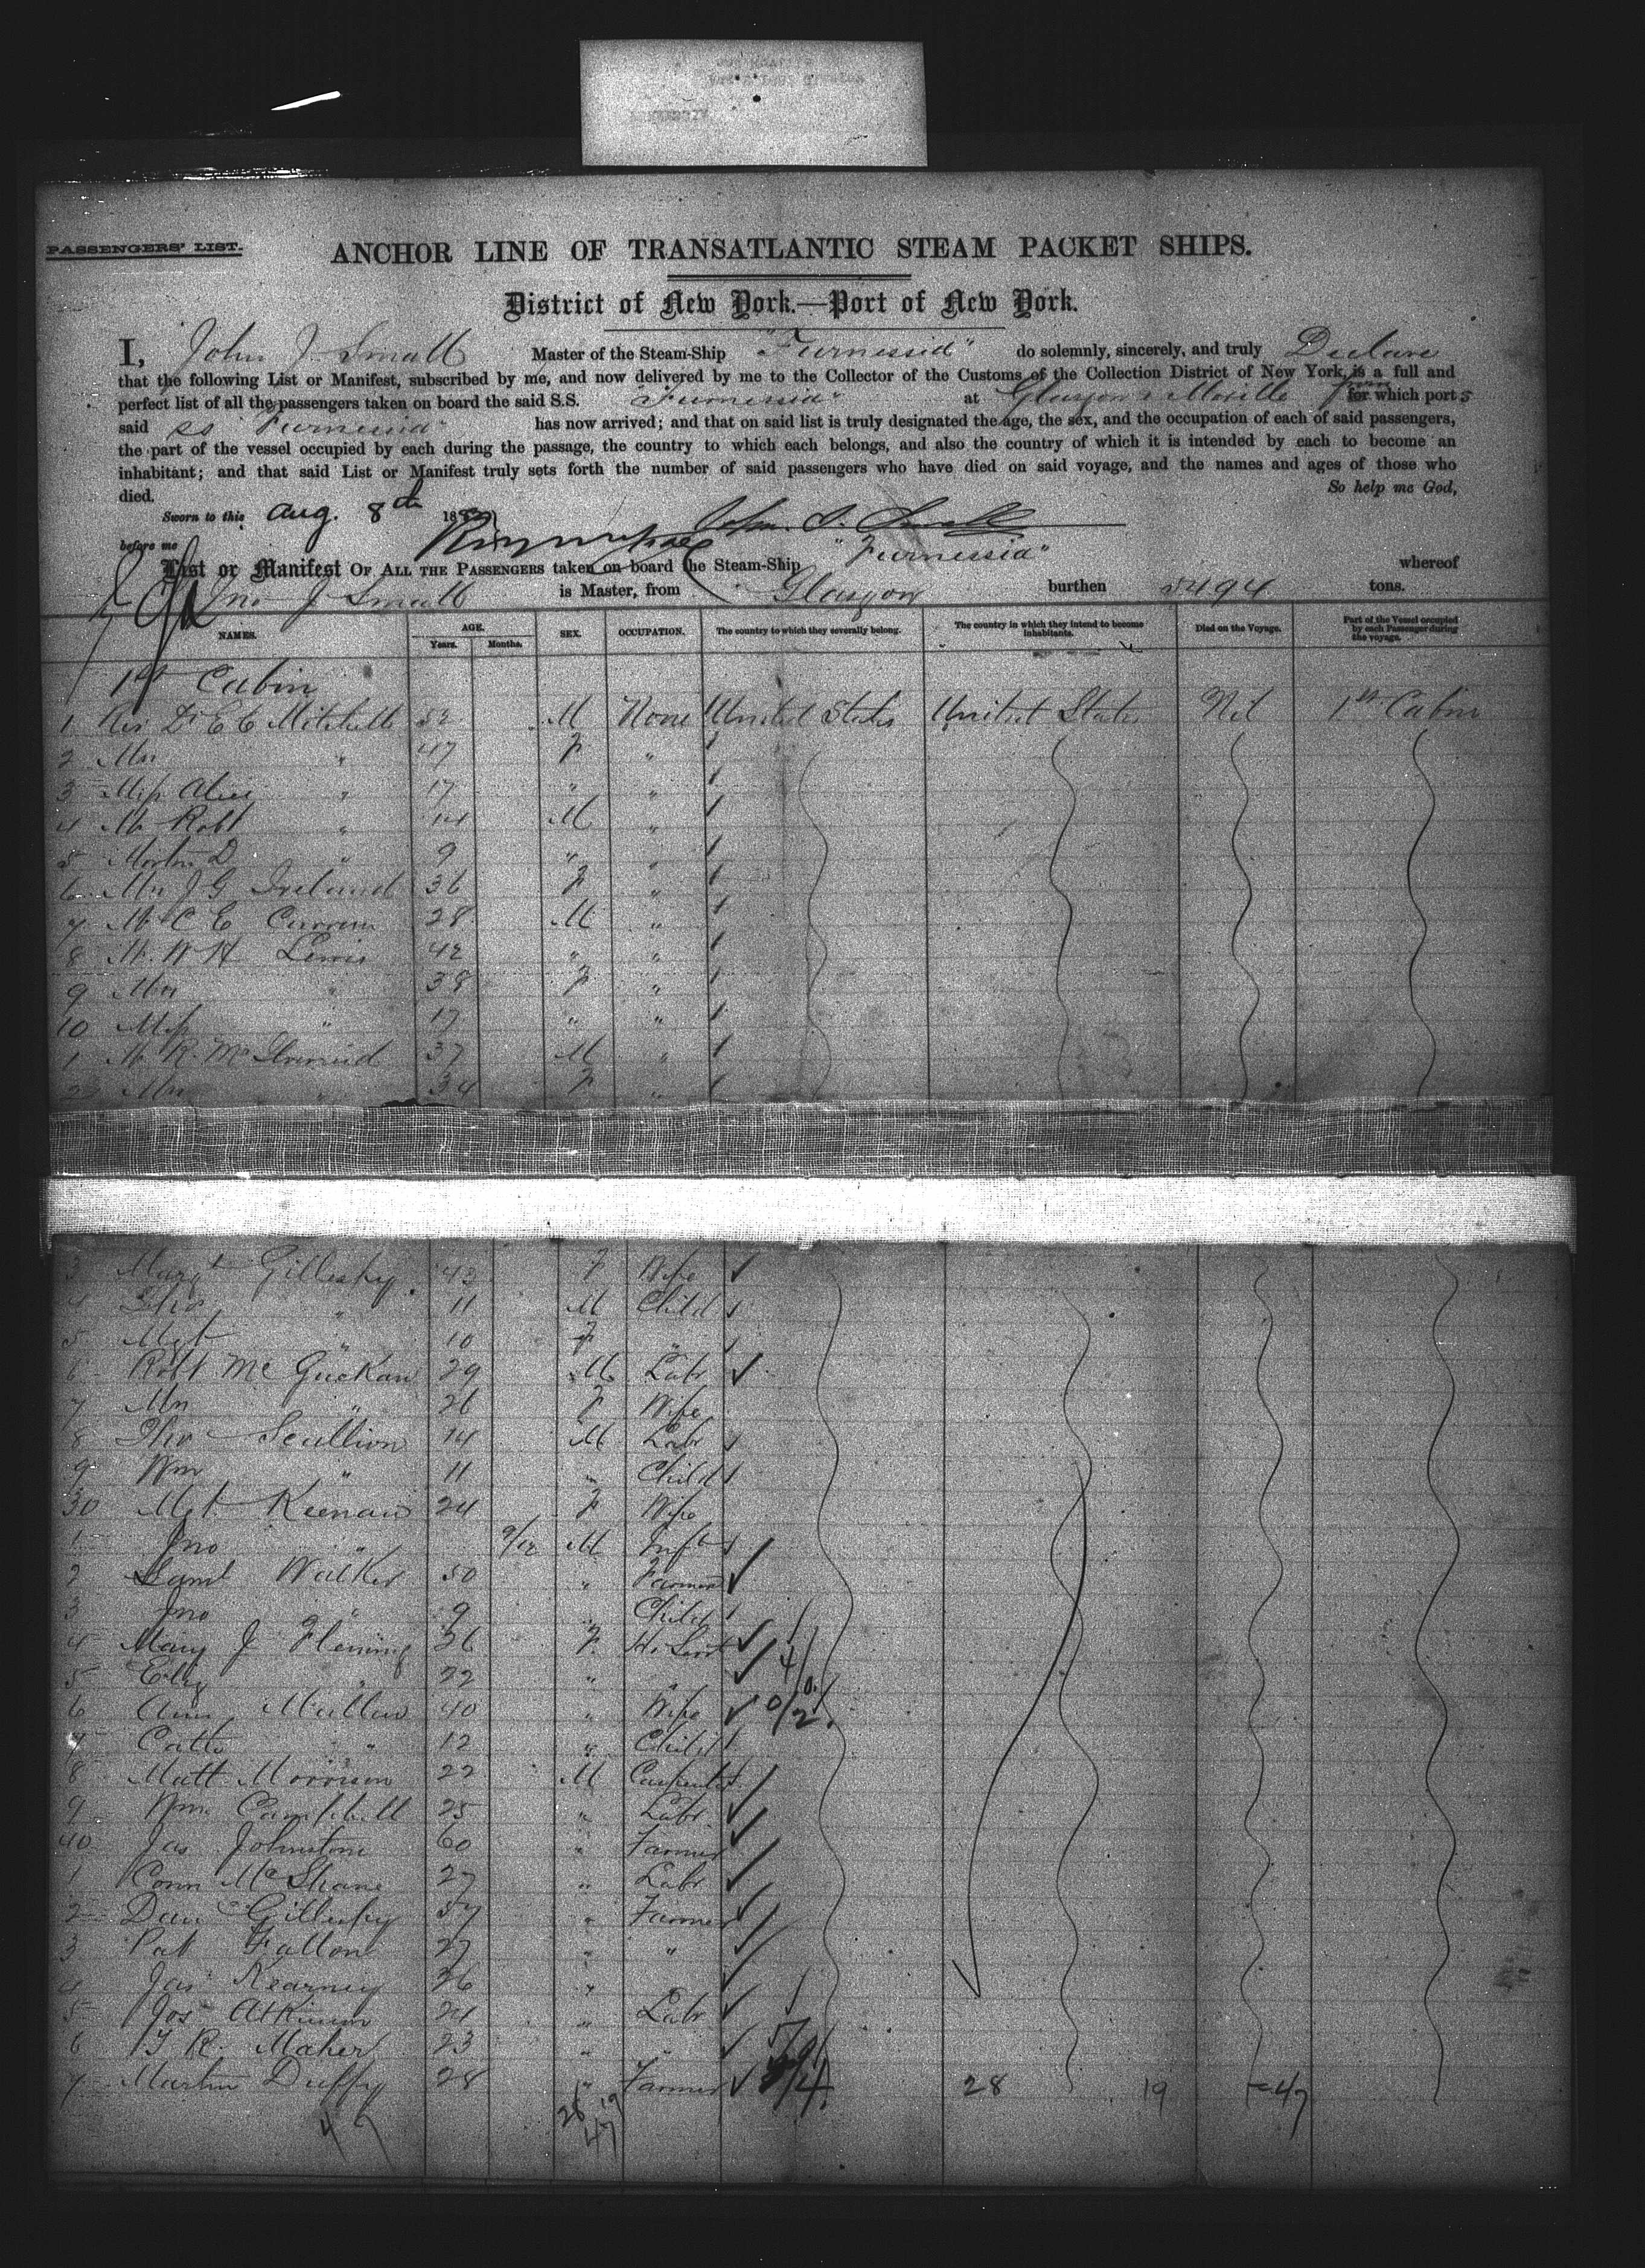 PASSENGERS' LIST.
ANCHOR LINE OF TRANSATLANTIC STEAM PACKET SHIPS.
District of New York.—Port of New York.
I, John J Small Master of the Steam-Ship "Furnessia" do solemnly, sincerely, and truly Declare
that the following List or Manifest, subscribed by me, and now delivered by me to the Collector of the Customs of the Collection District of New York, is a full and
perfect list of all the passengers taken on board the said S.S. "Furnessia" at Glasgow & Moville from which ports
said SS "Furnessia" has now arrived; and that on said list is truly designated the age, the sex, and the occupation of each of said passengers,
the part of the vessel occupied by each during the passage, the country to which each belongs, and also the country of which it is intended by each to become an
inhabitant; and that said List or Manifest truly sets forth the number of said passengers who have died on said voyage, and the names and ages of those who
died. So help me God,
Sworn to this Aug. 8th 188 John J. Small
before me
List or Manifest OF ALL THE PASSENGERS taken on board the Steam-Ship "Furnessia" whereof
Jno J Small is Master, from Glasgow burthen 5494 tons.
NAMES. AGE. Years. Months. SEX. OCCUPATION. The country to which they severally belong. The country in which they intend to become inhabitants. Died on the Voyage. Part of the Vessel occupied by each Passenger during the voyage.
1st Cabin
1 Rev Dr E C Mitchell 52 M None United States United States Nil 1st Cabin
2 Mrs " 47 F "
3 Miss Alice " 17 " "
4 Mr Robt " 14 M "
5 Morton D " 9 " "
6 Mrs J G Ireland 36 F "
7 Mr C E Curran 28 M "
8 Mr W H Lewis 42 " "
9 Mrs " 38 F "
10 Miss " 17 " "
1 Mr R. 37 M "
2 Mrs " 34 F "
3 Margt Gillesky 43 F Wife
4 Tho " 11 M Child
5 Mgt " 10 F "
6 Robt McGuckan 29 M Labr
7 Mrs " 26 F Wife
8 Tho Scullion 14 M Labr
9 Wm " 11 " Child
30 Mgt Keenan 24 F Wife
1 Jno " 9/12 M Inft
2 Saml Walker 50 " Farmer
3 Jno " 9 " Child
4 Mary J Fleming 36 F H. Servt
5 Eliz " 22 " "
6 Ann Mullan 40 " Wife
7 Cath " 12 " Child
8 Matt Morrison 22 M Carpenter
9 Wm Campbell 25 " Labr
40 Jas Johnstone 60 " Farmer
1 Conn McShane 27 " Labr
2 Dan Gillesky 57 " Farmer
3 Pat Fallon 27 " "
4 Jas Kearney 26 "
5 Jos Atkinson 24 " Labr
6 T R. Maher 23 " "
7 Martin Duffy 28 " Farmer 28 19 = 47
47 28 19
47